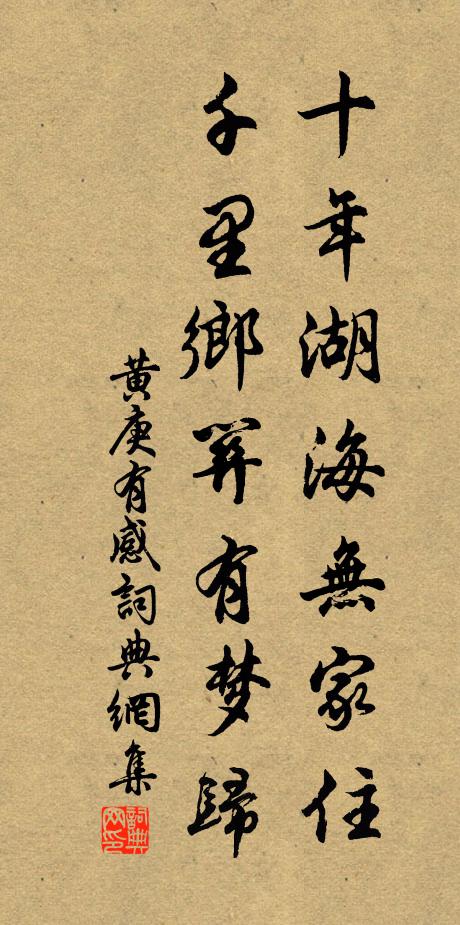 十年湖海無家住
千里鄉關有梦歸
黃庚有感詞典網集
詞典网印